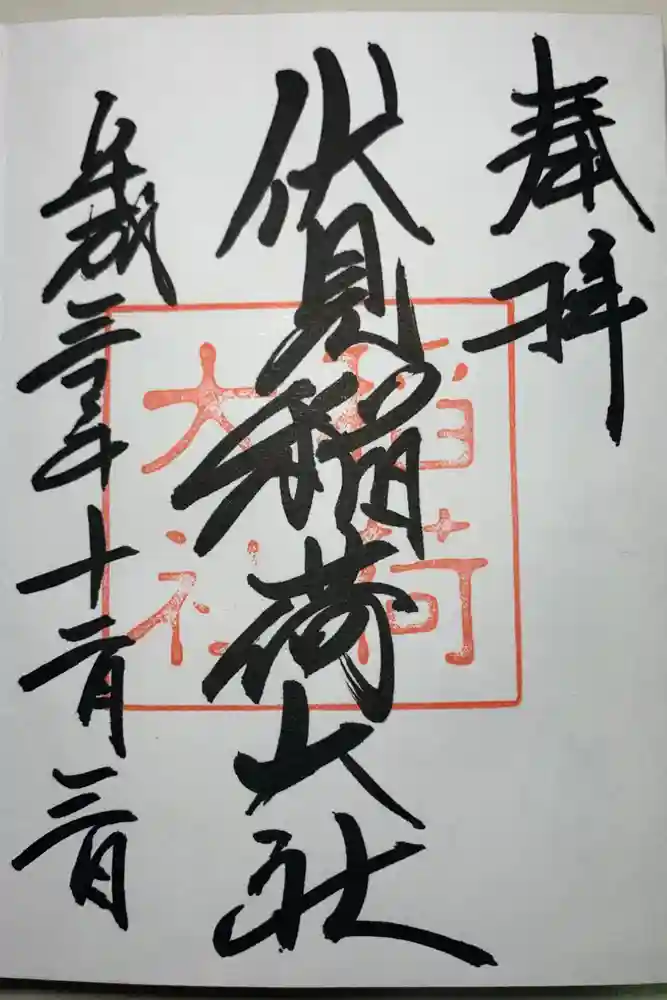 奉拝
伏見稲荷大社
平成三十年十二月三日
稲荷
大社